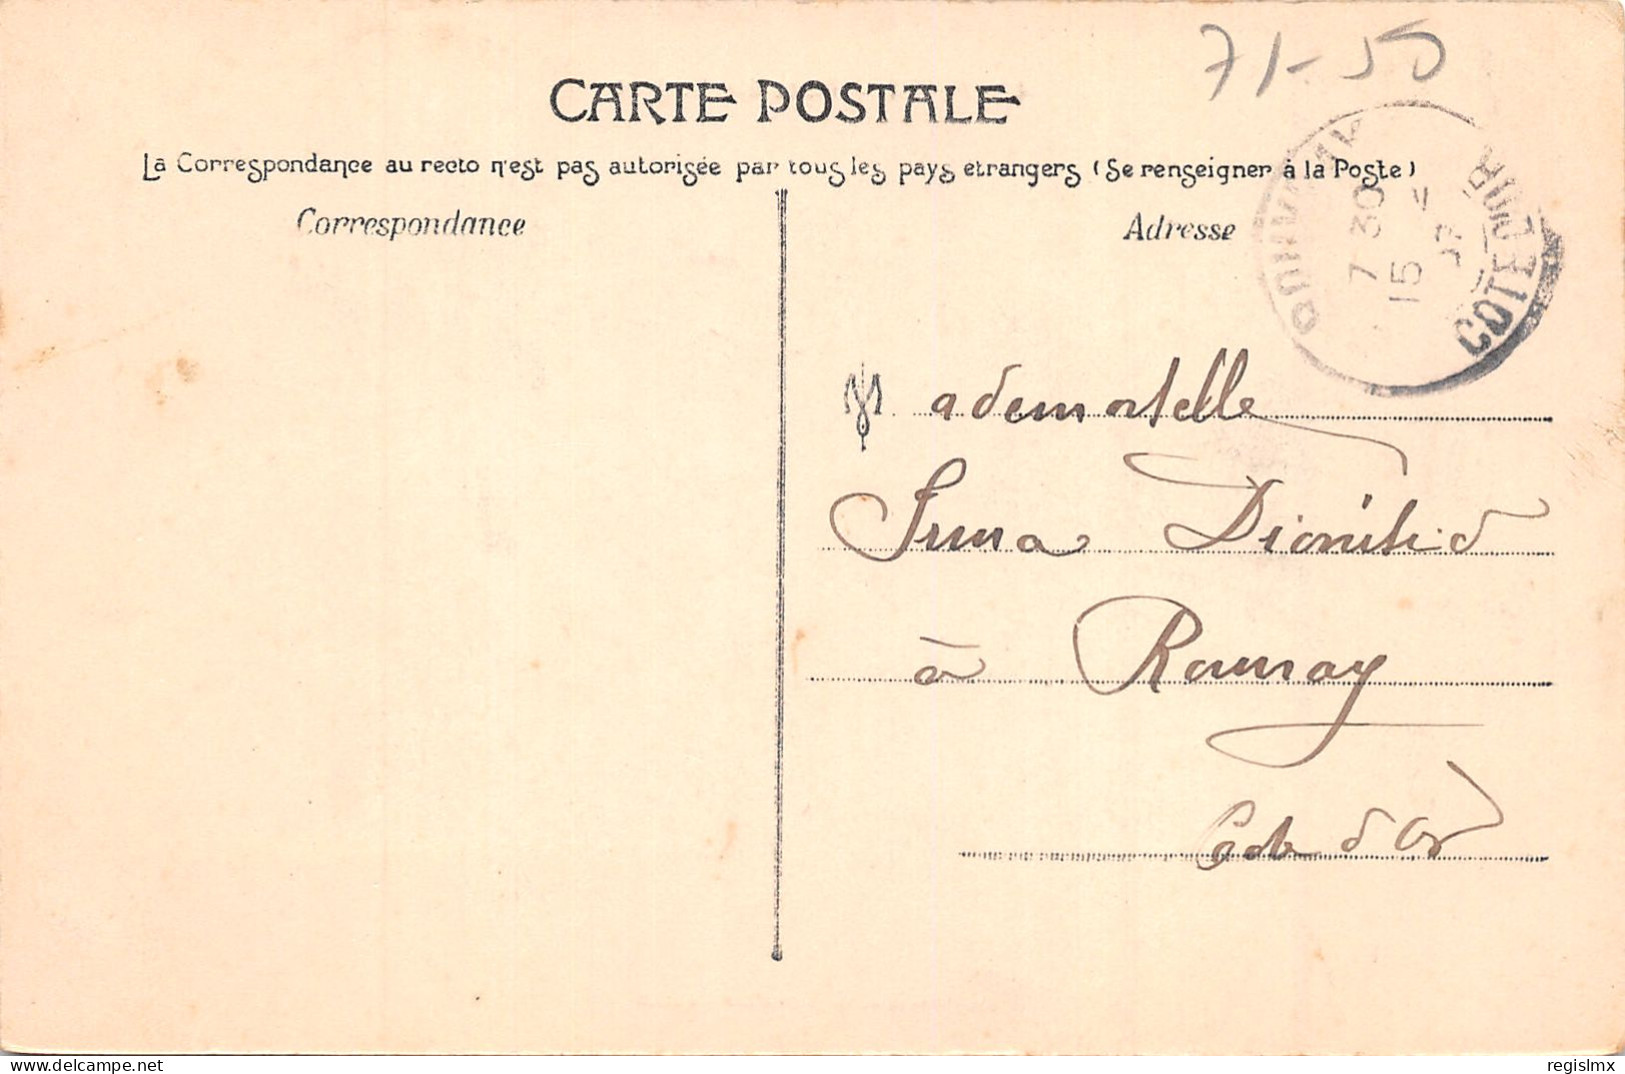 71-50
CARTE POSTALE
La Correspondance au recto n'est pas autorisée par tous les pays etrangers (Se renseigner à la Poste)
Correspondance
Adresse
7 30
15
COTE D'OR
Mademoiselle
à
Cote d'Or
www.delcampe.net
regislmx